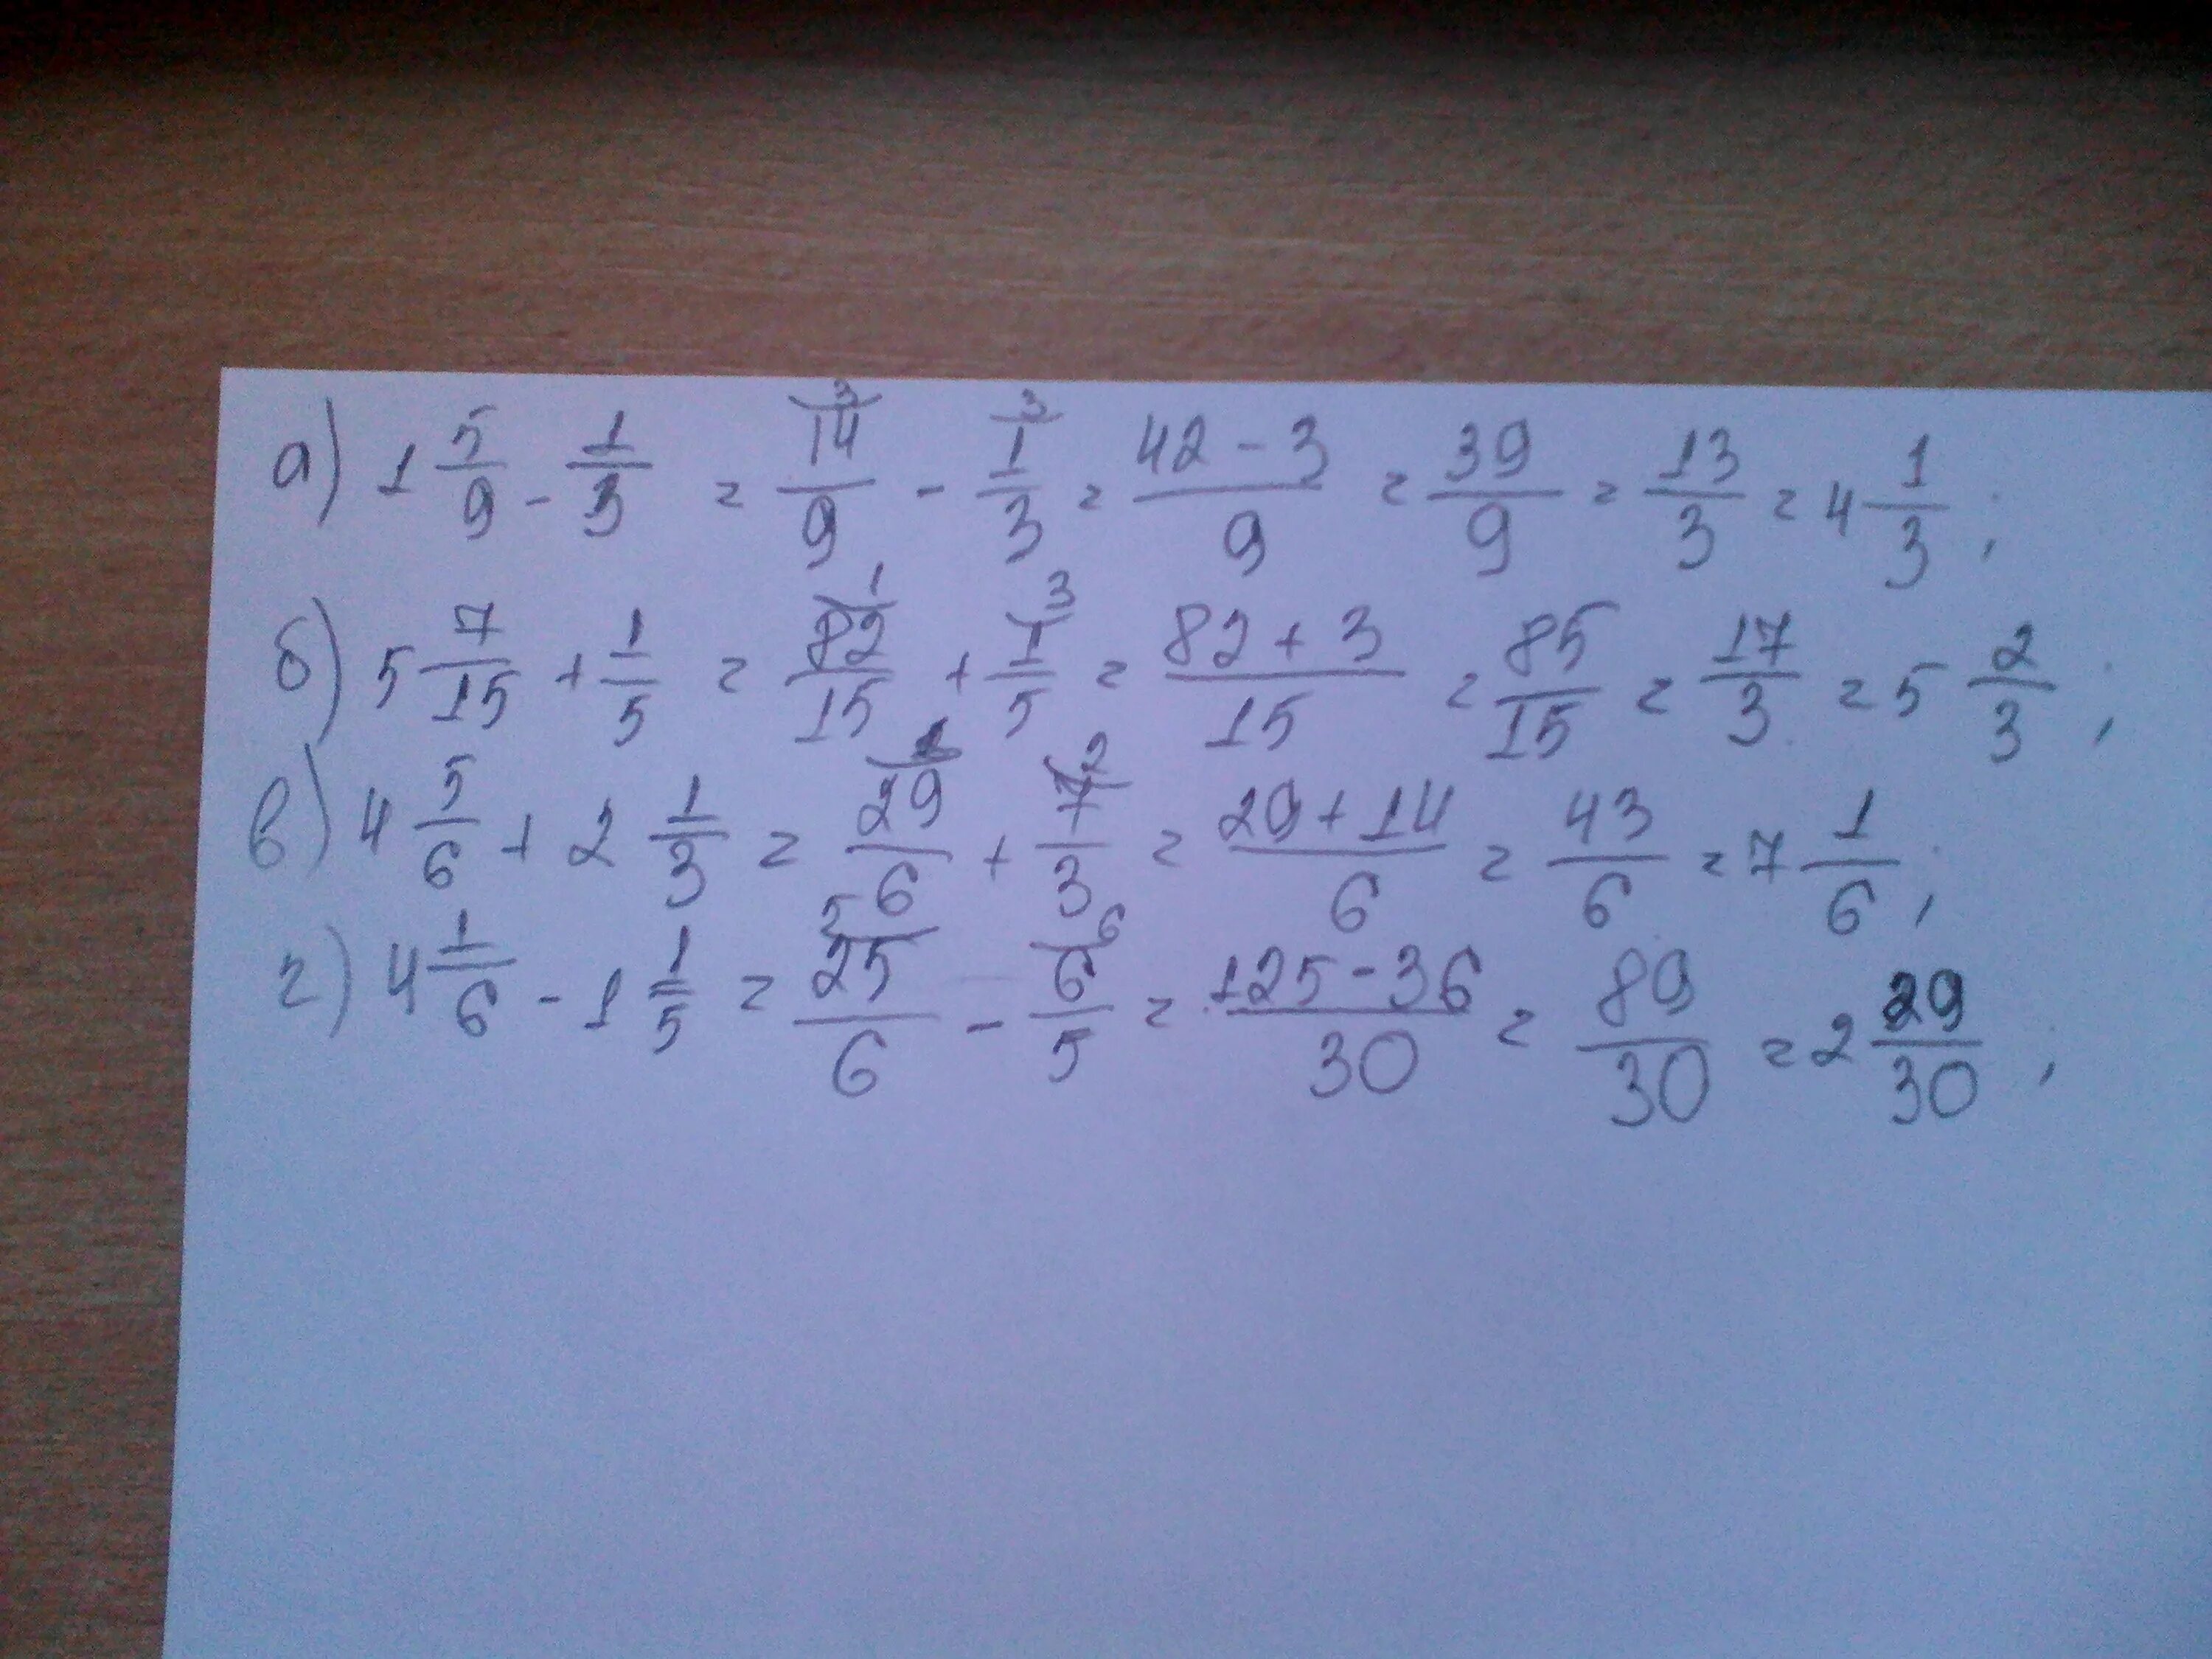 а) 1 5/9 - 1/3 = 14/9 ³ - 1/3 ³ = 42-3/9 = 39/9 = 13/3 = 4 1/3 ;
б) 5 7/15 + 1/5 = 82/15 ¹ + 1/5 ³ = 82+3/15 = 85/15 = 17/3 = 5 2/3 ;
в) 4 5/6 + 2 1/3 = 29/6 ¹ + 7/3 ² = 29+14/6 = 43/6 = 7 1/6 ;
г) 4 1/6 - 1 1/5 = 25/6 ⁵ - 6/5 ⁶ = 125-36/30 = 89/30 = 2 29/30 ;